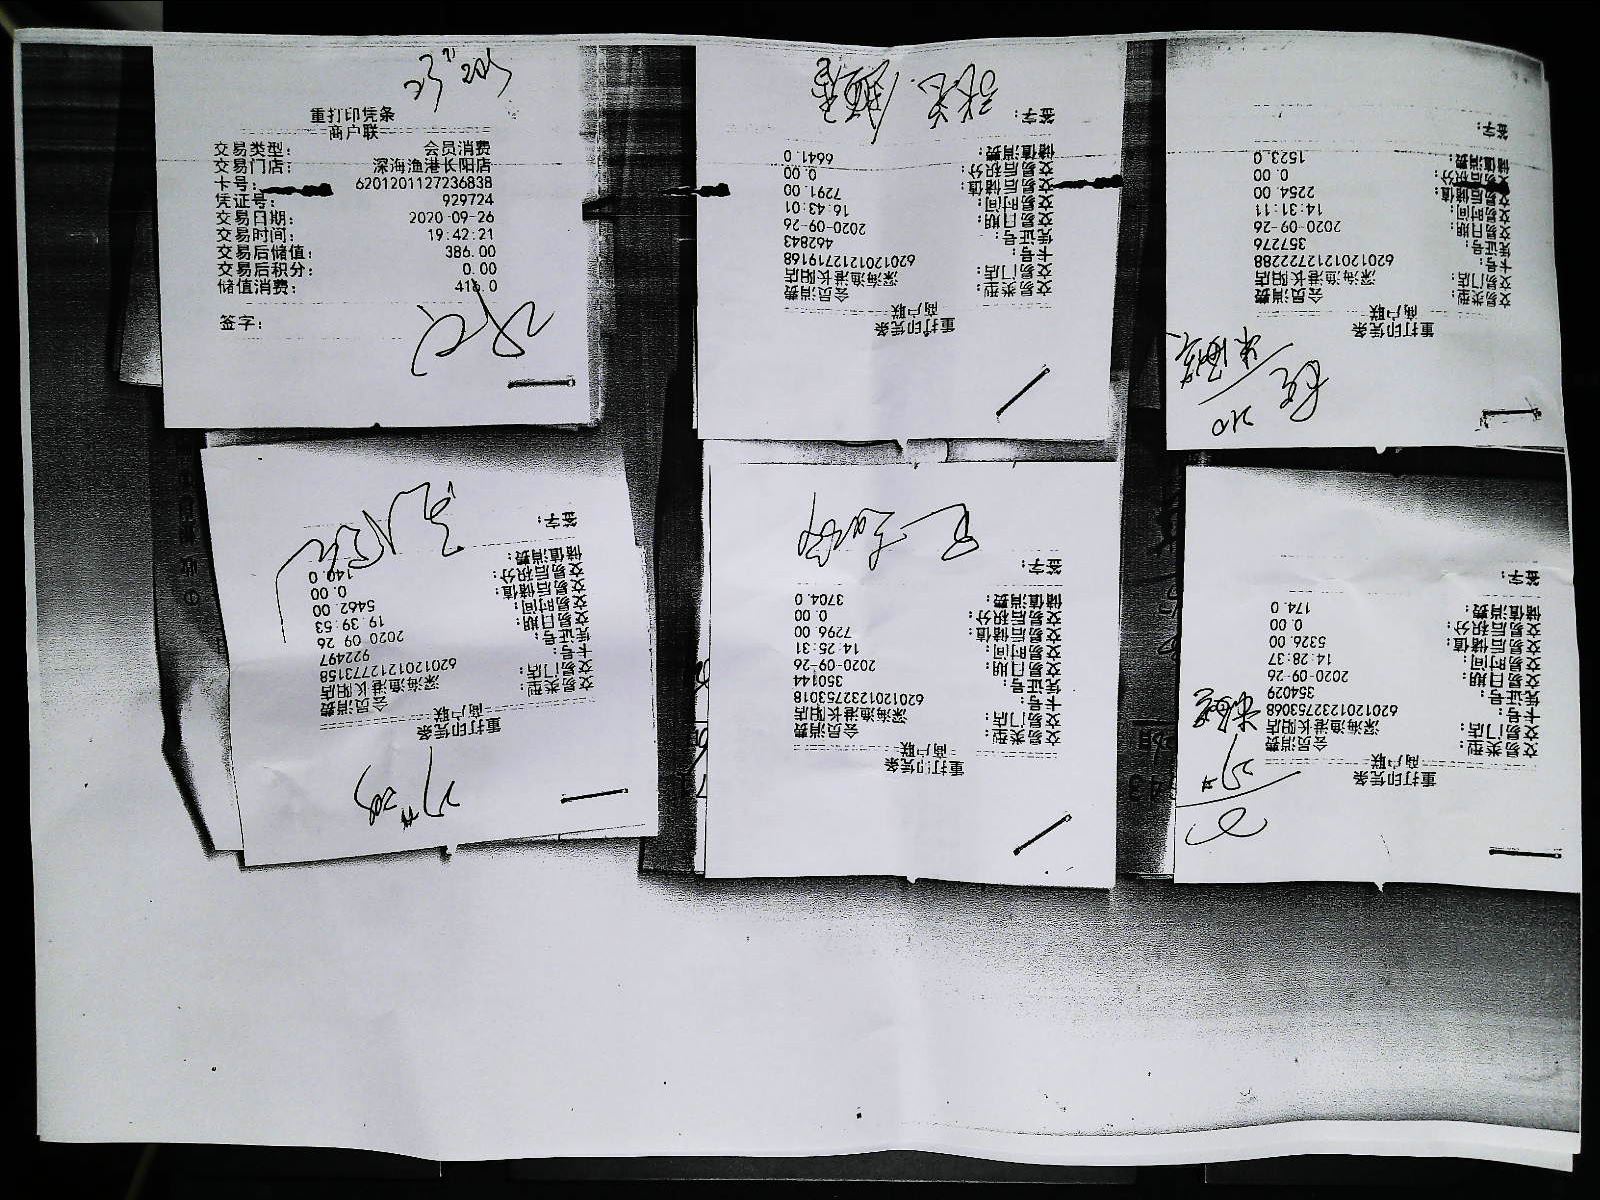 重打印凭条
商户联
交易类型: 会员消费
交易门店: 深海渔港长阳店
卡号: 6201201127236838
凭证号: 929724
交易日期: 2020-09-26
交易时间: 19:42:21
交易后储值: 386.00
交易后积分: 0.00
储值消费: 416.0
签字:
重打印凭条
商户联
交易类型: 会员消费
交易门店: 深海渔港长阳店
卡号: 6201201212719168
凭证号: 462843
交易日期: 2020-09-26
交易时间: 16:43:01
交易后储值: 7291.00
交易后积分: 0.00
储值消费: 6641.0
签字:
重打印凭条
商户联
交易类型: 会员消费
交易门店: 深海渔港长阳店
卡号: 6201201212722288
凭证号: 357276
交易日期: 2020-09-26
交易时间: 14:31:11
交易后储值: 2254.00
交易后积分: 0.00
储值消费: 1523.0
签字:
210
重打印凭条
商户联
交易类型: 会员消费
交易门店: 深海渔港长阳店
卡号: 6201201212773158
凭证号: 922497
交易日期: 2020 09 26
交易时间: 19:39:53
交易后储值: 5462.00
交易后积分: 0.00
储值消费: 140.0
签字:
重打印凭条
商户联
交易类型: 会员消费
交易门店: 深海渔港长阳店
卡号: 6201201232753018
凭证号: 350144
交易日期: 2020-09-26
交易时间: 14:25:31
交易后储值: 7296.00
交易后积分: 0.00
储值消费: 3704.0
签字:
重打印凭条
商户联
交易类型: 会员消费
交易门店: 深海渔港长阳店
卡号: 6201201232753068
凭证号: 354029
交易日期: 2020-09-26
交易时间: 14:28:37
交易后储值: 5326.00
交易后积分: 0.00
储值消费: 174.0
签字: